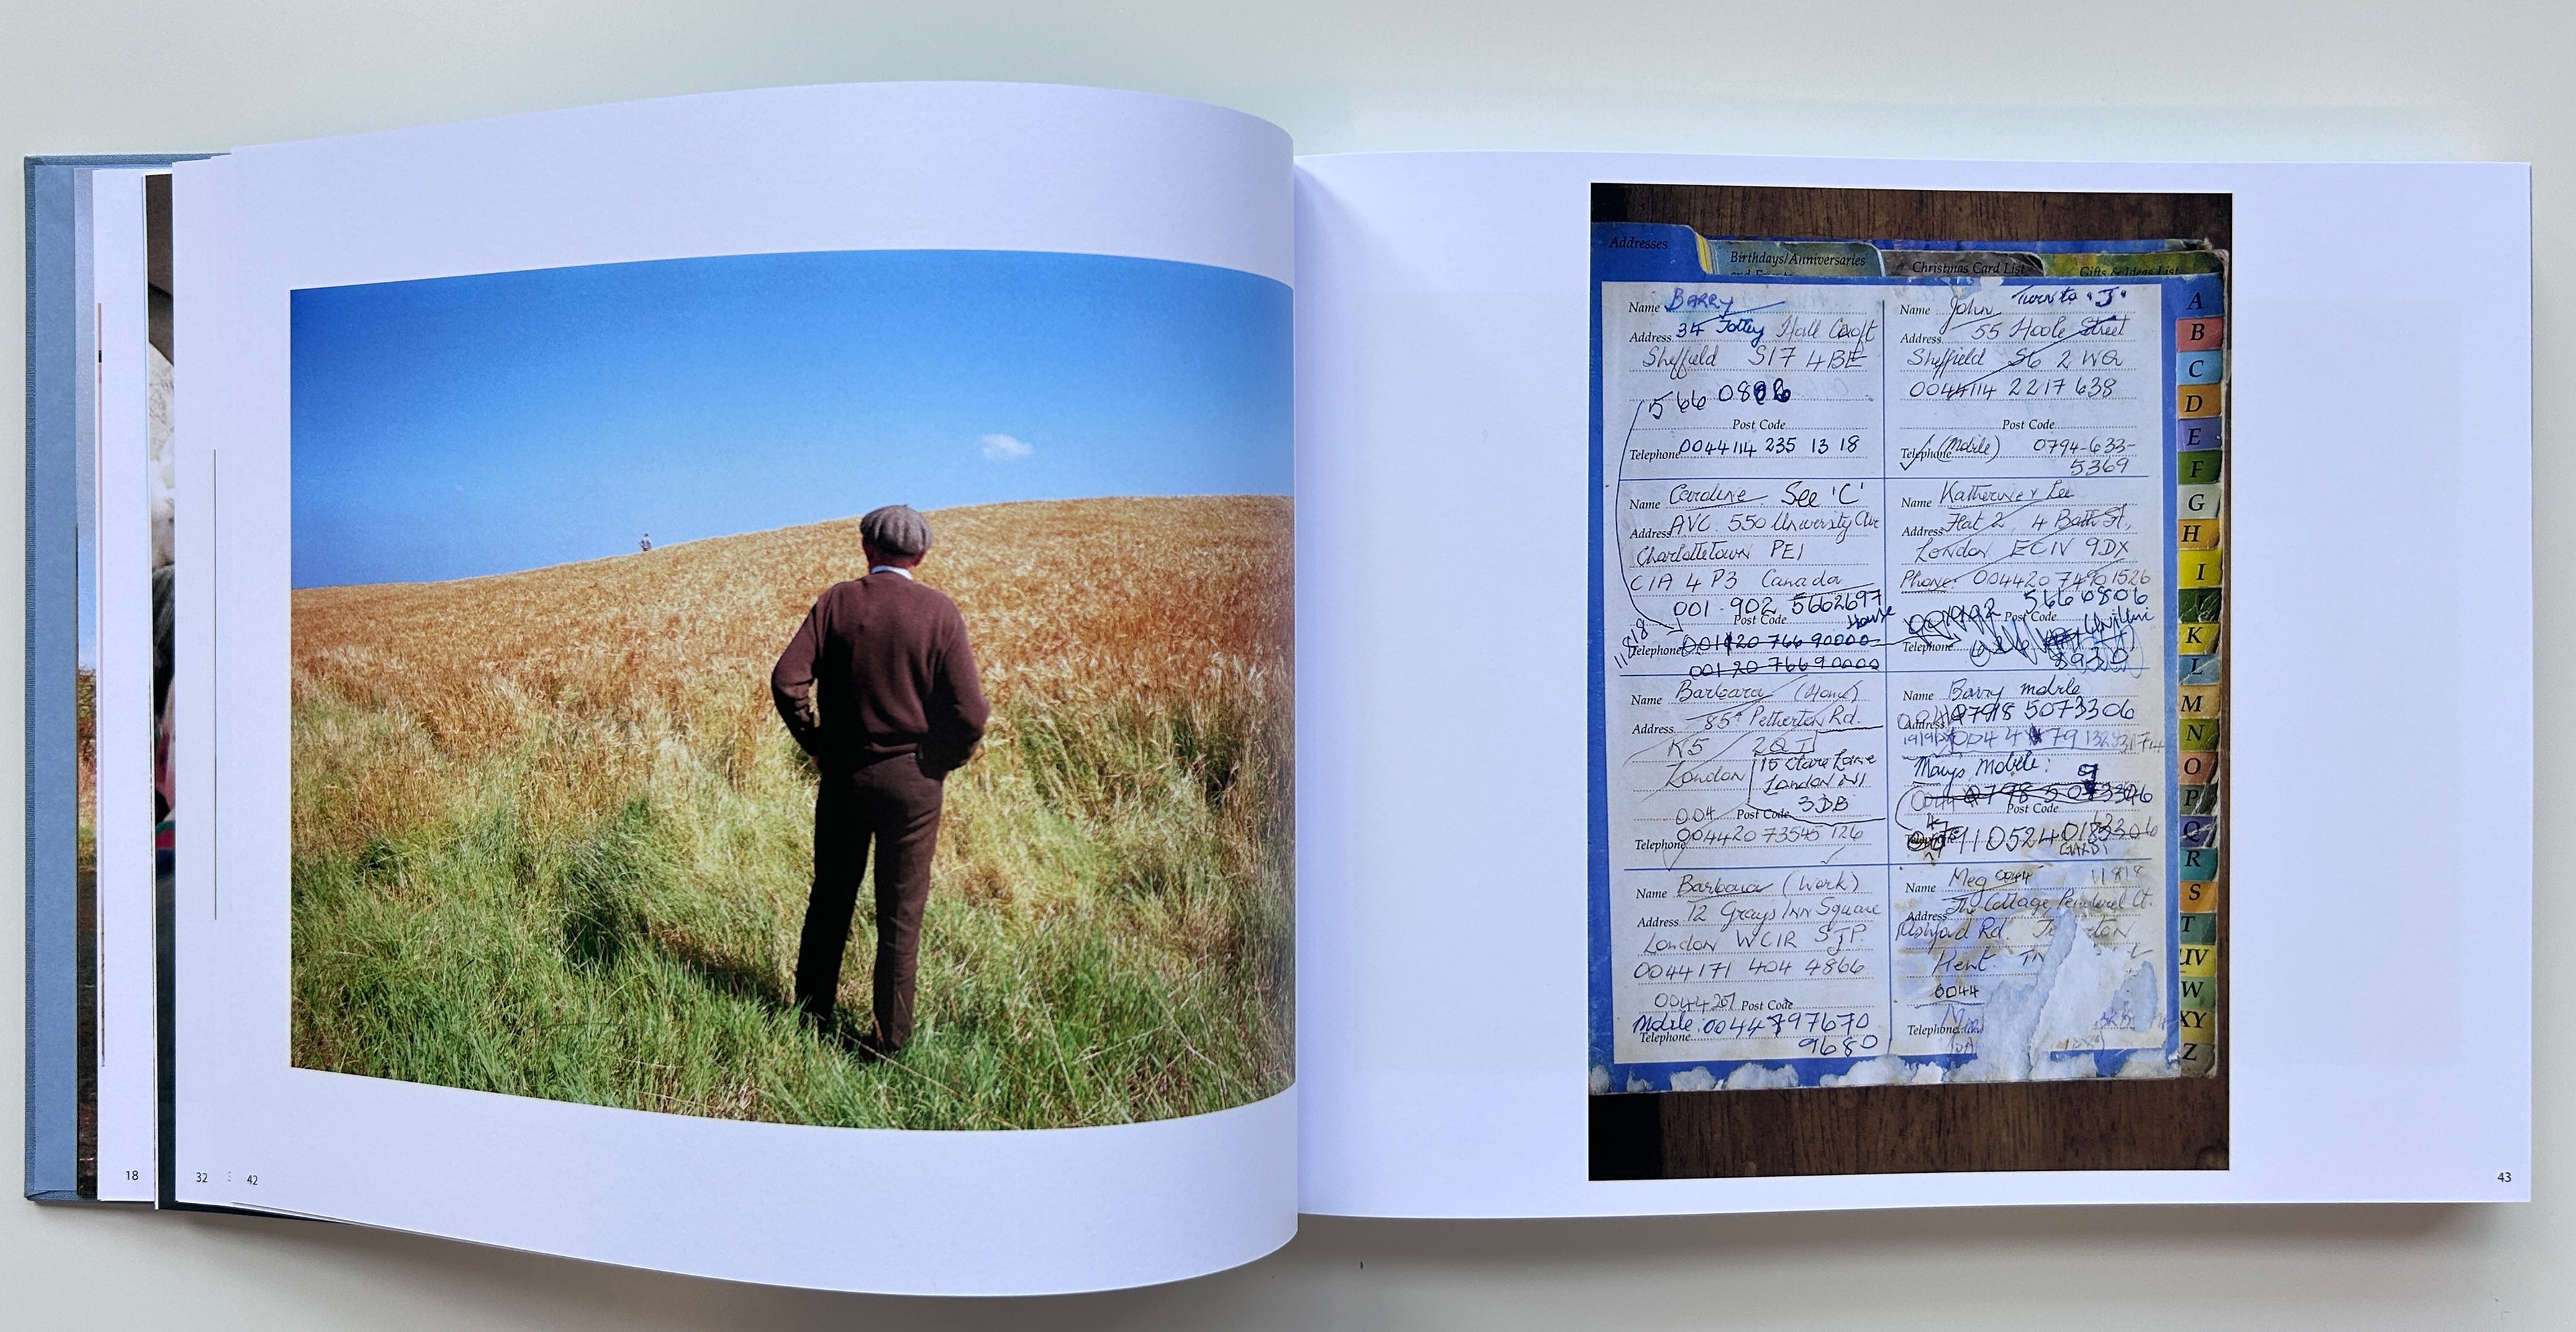 18
32
42
Addresses
Birthdays/Anniversaries
and Events
Christmas Card List
Gifts & Ideas List
Name Barry
Address 34 Totley Hall Croft
Sheffield S17 4BE
566 0806
Post Code
Telephone 0044 114 235 13 18
Name Caroline See 'C'
Address AVC 550 University Ave
Charlottetown PEI
C1A 4P3 Canada
001 902 5662697
Post Code
House
11818
Telephone 001 20 766 90000
001 20 766 90000
Name Barbara (Home)
Address 85A Petherton Rd.
K5 2QT
London
15 Clare Lane
London N1
3DB
004 Post Code
Telephone 004420 73545 126
Name Barbara (Work)
Address 12 Grays Inn Square
London WC1R 5JP
0044171 404 4866
0044207 Post Code
Mobile: 0044 797670
Telephone 9680
Name John Turn to "J"
Address 55 Hoole Street
Sheffield S6 2WQ
0044114 2217 638
Post Code
Telephone (Mobile) 0794-633-
5369
Name Katherine & Lee
Address Flat 2, 4 Bath St,
London EC1V 9DX
Phone: 004420 7490 1526
566 0806
Post Code
Telephone
8930
Name Barry mobile
Address 07918 5073306
Mary's Mobile:
Post Code
Telephone
Name Meg 0044 11818
Address The Cottage,
Ashford Rd
Kent. TN
0044
Telephone
A
B
C
D
E
F
G
H
I
J
K
L
M
N
O
P
Q
R
S
T
UV
W
XY
Z
43